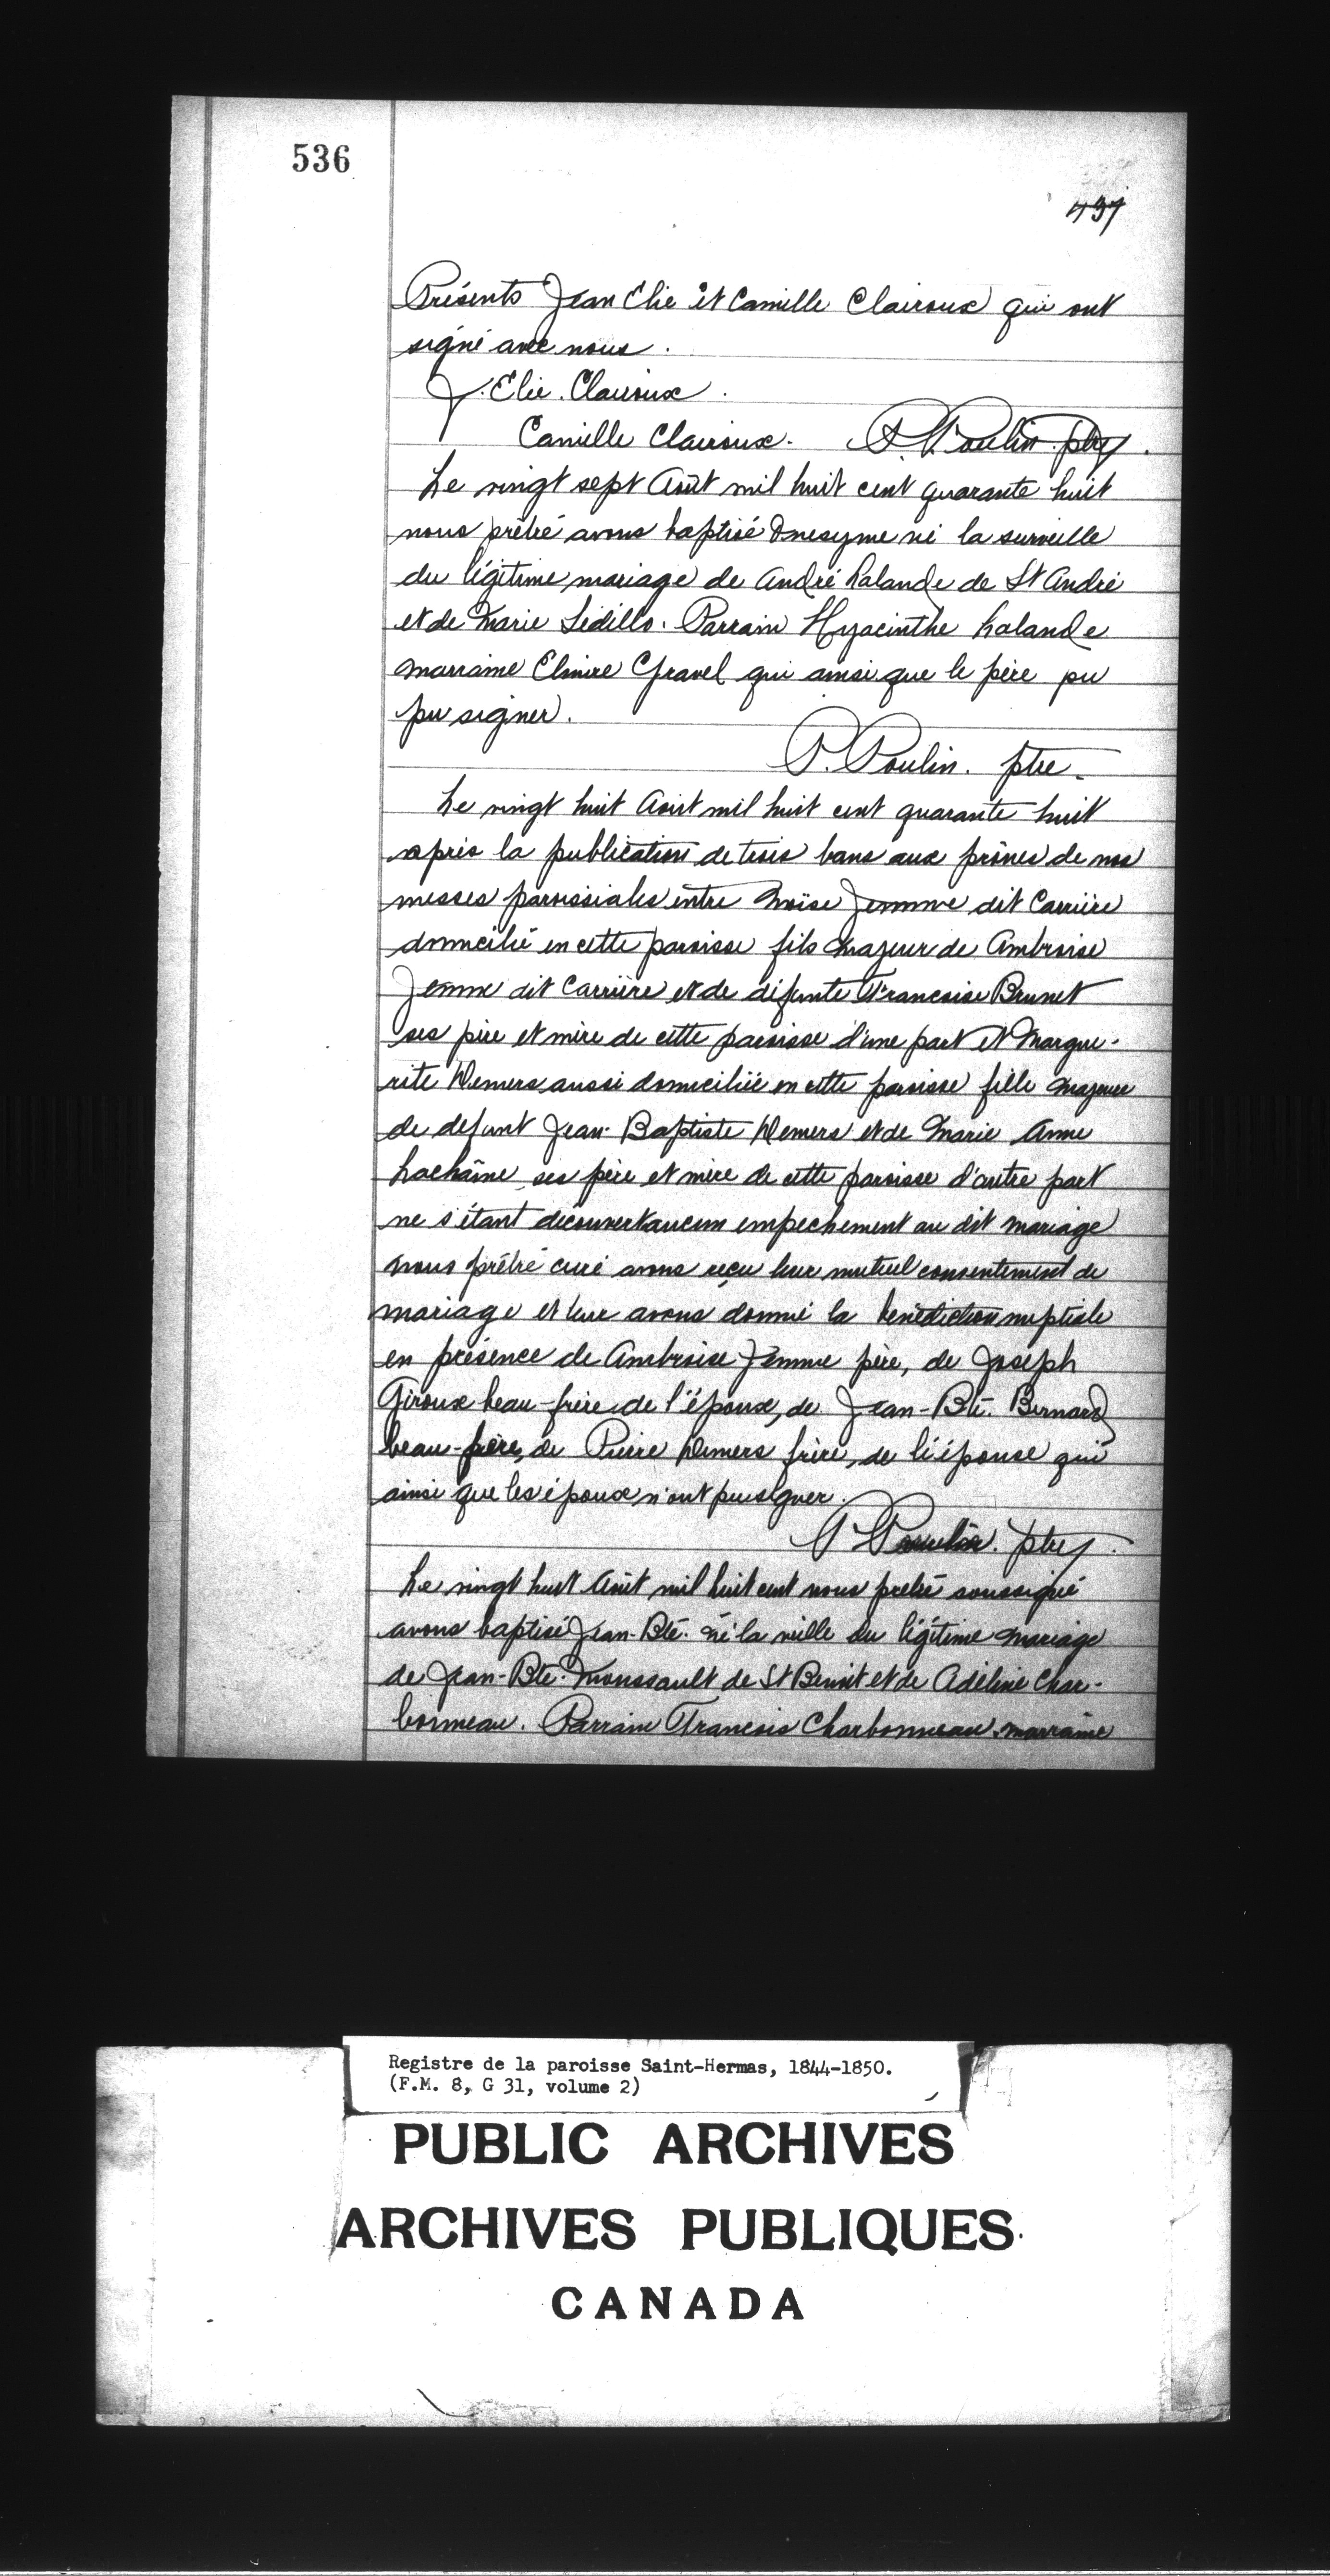 536
497
Présents Jean Elie et Camille Clairoux qui ont
signé avec nous.
J. Elie. Clairoux.
Camille Clairoux. P. Poulin. ptre.
Le vingt sept Août mil huit cent quarante huit
nous prêtre avons baptisé Onesyme né la surveille
du légitime mariage de André Lalande de St André
et de Marie Sédillo. Parrain Hyacinthe Lalande
marraine Elmire Gravel qui ainsi que le père pu
pu signer.
P. Poulin. ptre.
Le vingt huit Août mil huit cent quarante huit
après la publication de trois bans aux prônes de nos
messes paroissiales entre Moïse Jemme dit Carrière
domicilié en cette paroisse fils majeur de Ambroise
Jemme dit Carrière et de défunte Francoise Brunet
ses père et mère de cette paroisse d'une part et Margue-
rite Demers aussi domiciliée en cette paroisse fille majeure
de defunt Jean-Baptiste Demers et de Marie Anne
Lachaîne ses père et mère de cette paroisse d'autre part
ne s'étant découvert aucun empechement au dit mariage
nous prêtre curé avons reçu leur mutuel consentement de
mariage et leur avons donné la bénédiction nuptiale
en présence de Ambroise Jemme père, de Joseph
Giroux beau-frère de l'époux, de Jean-Bte. Bernard
beau-frère, de Pierre Demers frère, de l'épouse qui
ainsi que les époux n'ont pu signer.
P. Poulin. ptre.
Le vingt huit Août mil huit cent nous prêtre soussigné
avons baptisé Jean-Bte. né la veille du légitime mariage
de Jean-Bte. Moussault de St Benoit et de Adéline Char-
bonneau. Parrain Francois Charbonneau marraine
Registre de la paroisse Saint-Hermas, 1844-1850.
(F.M. 8, G 31, volume 2)
PUBLIC ARCHIVES
ARCHIVES PUBLIQUES
CANADA